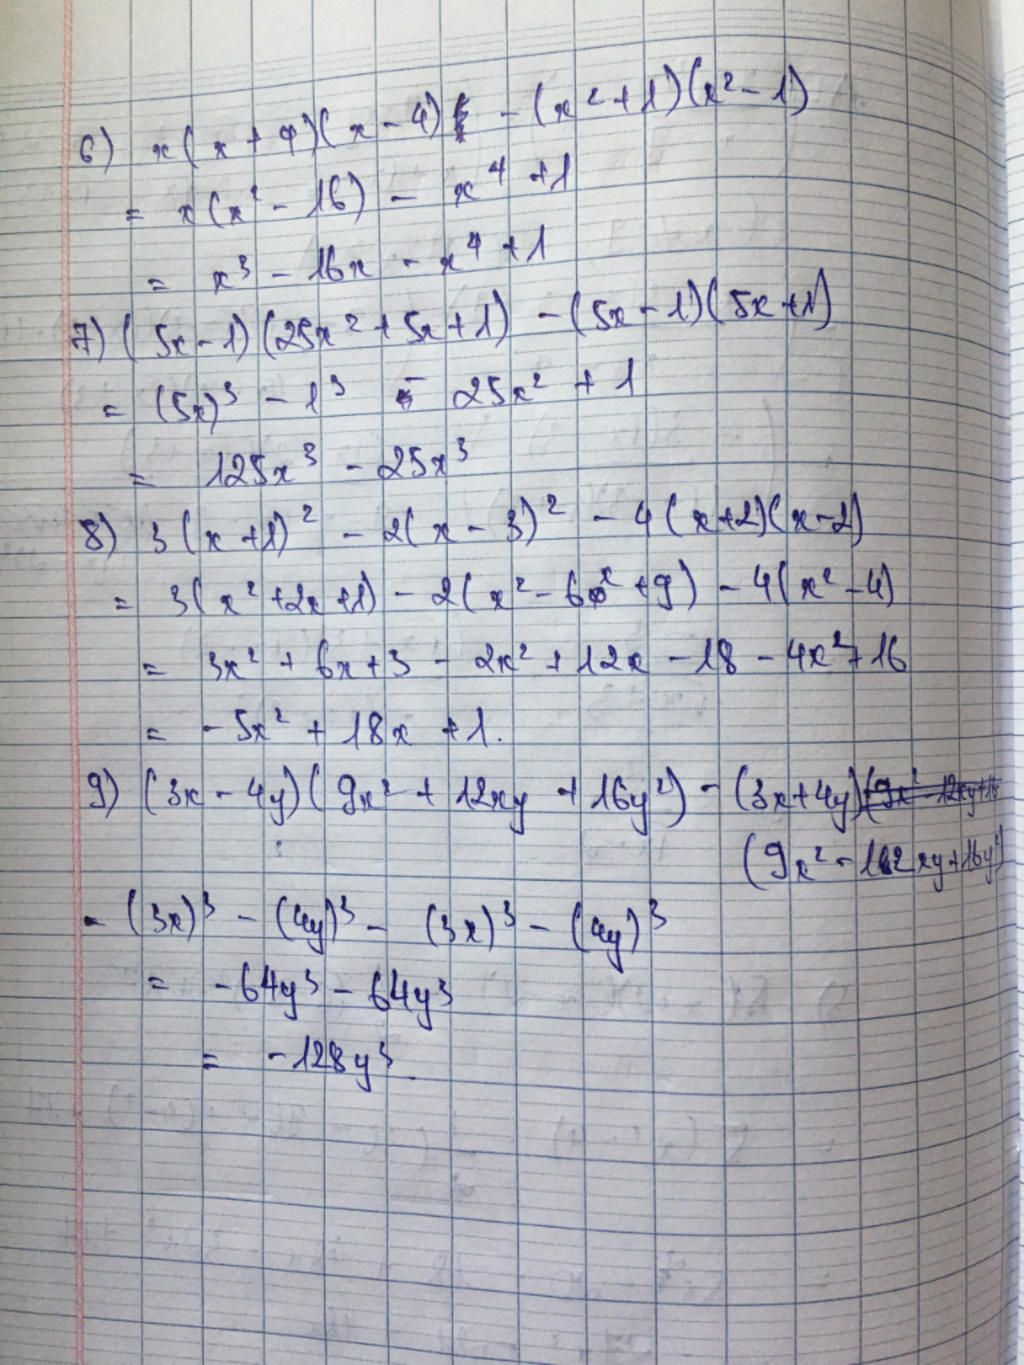 6) x(x+4)(x-4) - (x²+1)(x²-1)
= x(x²-16) - x⁴ +1
= x³ - 16x - x⁴ +1
7) (5x-1)(25x²+5x+1) - (5x-1)(5x+1)
= (5x)³ - 1³ - 25x² + 1
= 125x³ - 25x³
8) 3(x+1)² - 2(x-3)² - 4(x+2)(x-2)
= 3(x²+2x+1) - 2(x²-6x+9) - 4(x²-4)
= 3x² + 6x+3 - 2x² + 12x - 18 - 4x²+16
= -5x² + 18x +1.
9) (3x-4y)(9x² + 12xy + 16y²) - (3x+4y)
(9x² - 12xy+16y²)
= (3x)³ - (4y)³ - (3x)³ - (4y)³
= -64y³ - 64y³
= -128y³.